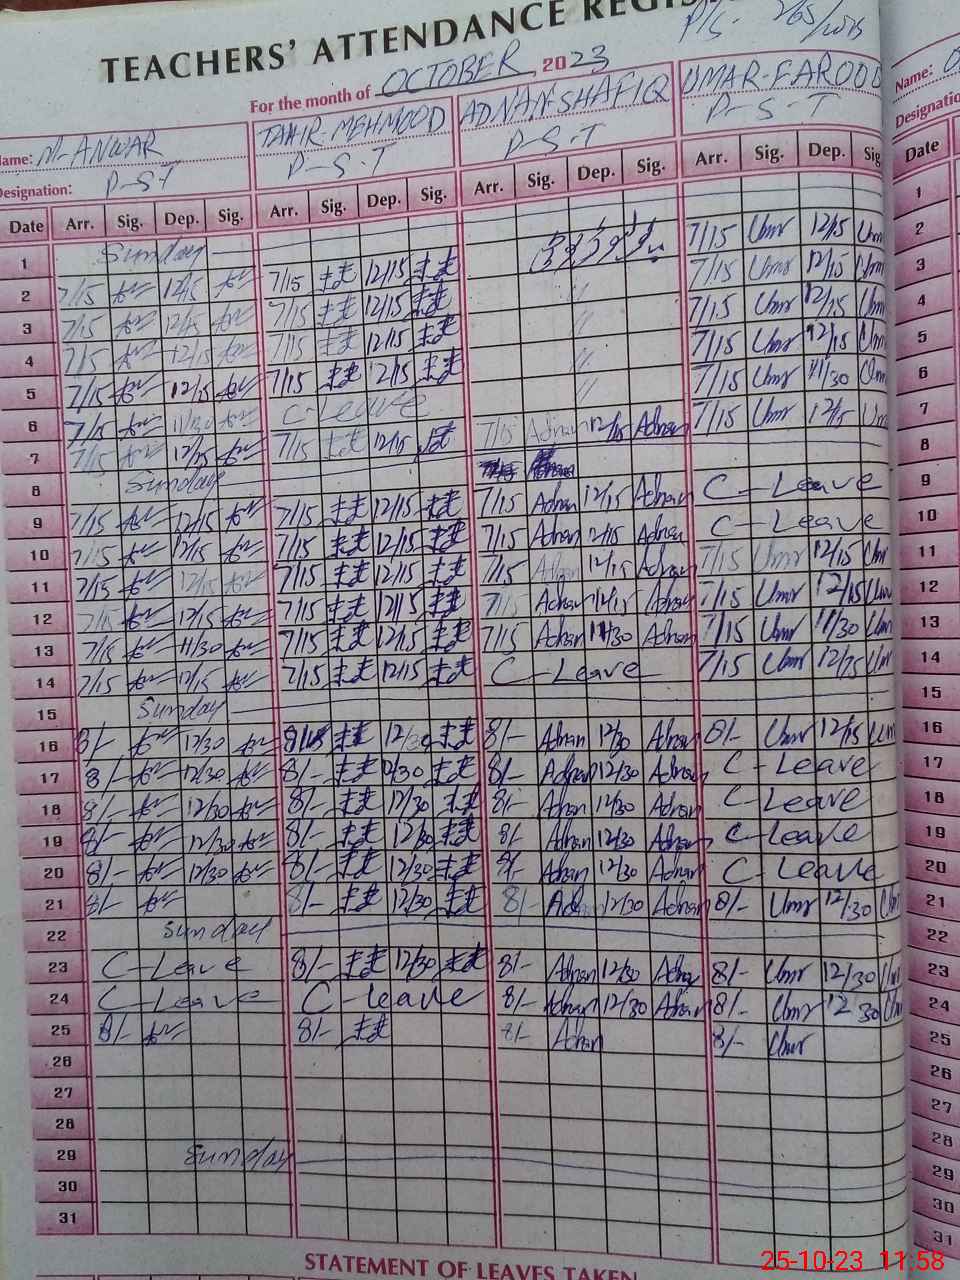 TEACHERS' ATTENDANCE REGIS
P/S.
For the month of OCTOBER, 2023
Name: M-ANWAR TAHIR-MEHMOOD ADNAN-SHAFIQ UMAR-FAROOQ Name:
Designation: P-ST P-S-T P-S-T P-S-T Designation
Date Arr. Sig. Dep. Sig. Arr. Sig. Dep. Sig. Arr. Sig. Dep. Sig. Arr. Sig. Dep. Sig Date
1 Sunday
2 7/15 12/15 7/15 12/15 7/15 Umr 12/15 Umr
3 7/15 12/15 7/15 12/15 〃 7/15 Umr 12/15 Umr
4 7/15 12/15 7/15 12/15 〃 7/15 Umr 12/15 Umr
5 7/15 12/15 7/15 12/15 〃 7/15 Umr 12/15 Umr
6 7/15 11/30 C-Leave 〃 7/15 Umr 11/30 Umr
7 7/15 12/15 7/15 12/15 7/15 Adnan 12/15 Adnan 7/15 Umr 12/15 Umr
8 Sunday
9 7/15 12/15 7/15 12/15 7/15 Adnan 12/15 Adnan C-Leave
10 7/15 12/15 7/15 12/15 7/15 Adnan 12/15 Adnan C-Leave
11 7/15 12/15 7/15 12/15 7/15 Adnan 12/15 Adnan 7/15 Umr 12/15 Umr
12 7/15 12/15 7/15 12/15 7/15 Adnan 12/15 Adnan 7/15 Umr 12/15 Umr
13 7/15 11/30 7/15 12/15 7/15 Adnan 11/30 Adnan 7/15 Umr 11/30 Umr
14 7/15 12/15 7/15 12/15 C-Leave 7/15 Umr 12/15 Umr
15 Sunday
16 8/- 12/30 8/- 12/30 8/- Adnan 12/30 Adnan 8/- Umr 12/15 Umr
17 8/- 12/30 8/- 12/30 8/- Adnan 12/30 Adnan C-Leave
18 8/- 12/30 8/- 12/30 8/- Adnan 12/30 Adnan C-Leave
19 8/- 12/30 8/- 12/30 8/- Adnan 12/30 Adnan C-Leave
20 8/- 12/30 8/- 12/30 8/- Adnan 12/30 Adnan C-Leave
21 8/- 8/- 12/30 8/- 12/30 Adnan 8/- Umr 12/30 Umr
22 Sunday
23 C-Leave 8/- 12/30 8/- Adnan 12/30 Adnan 8/- Umr 12/30 Umr
24 C-Leave C-Leave 8/- Adnan 12/30 Adnan 8/- Umr 12 30 Umr
25 8/- 8/- 8/- Adnan 8/- Umr
26
27
28
29 Sunday
30
31
STATEMENT OF LEAVES TAKEN
25-10-23 11:58